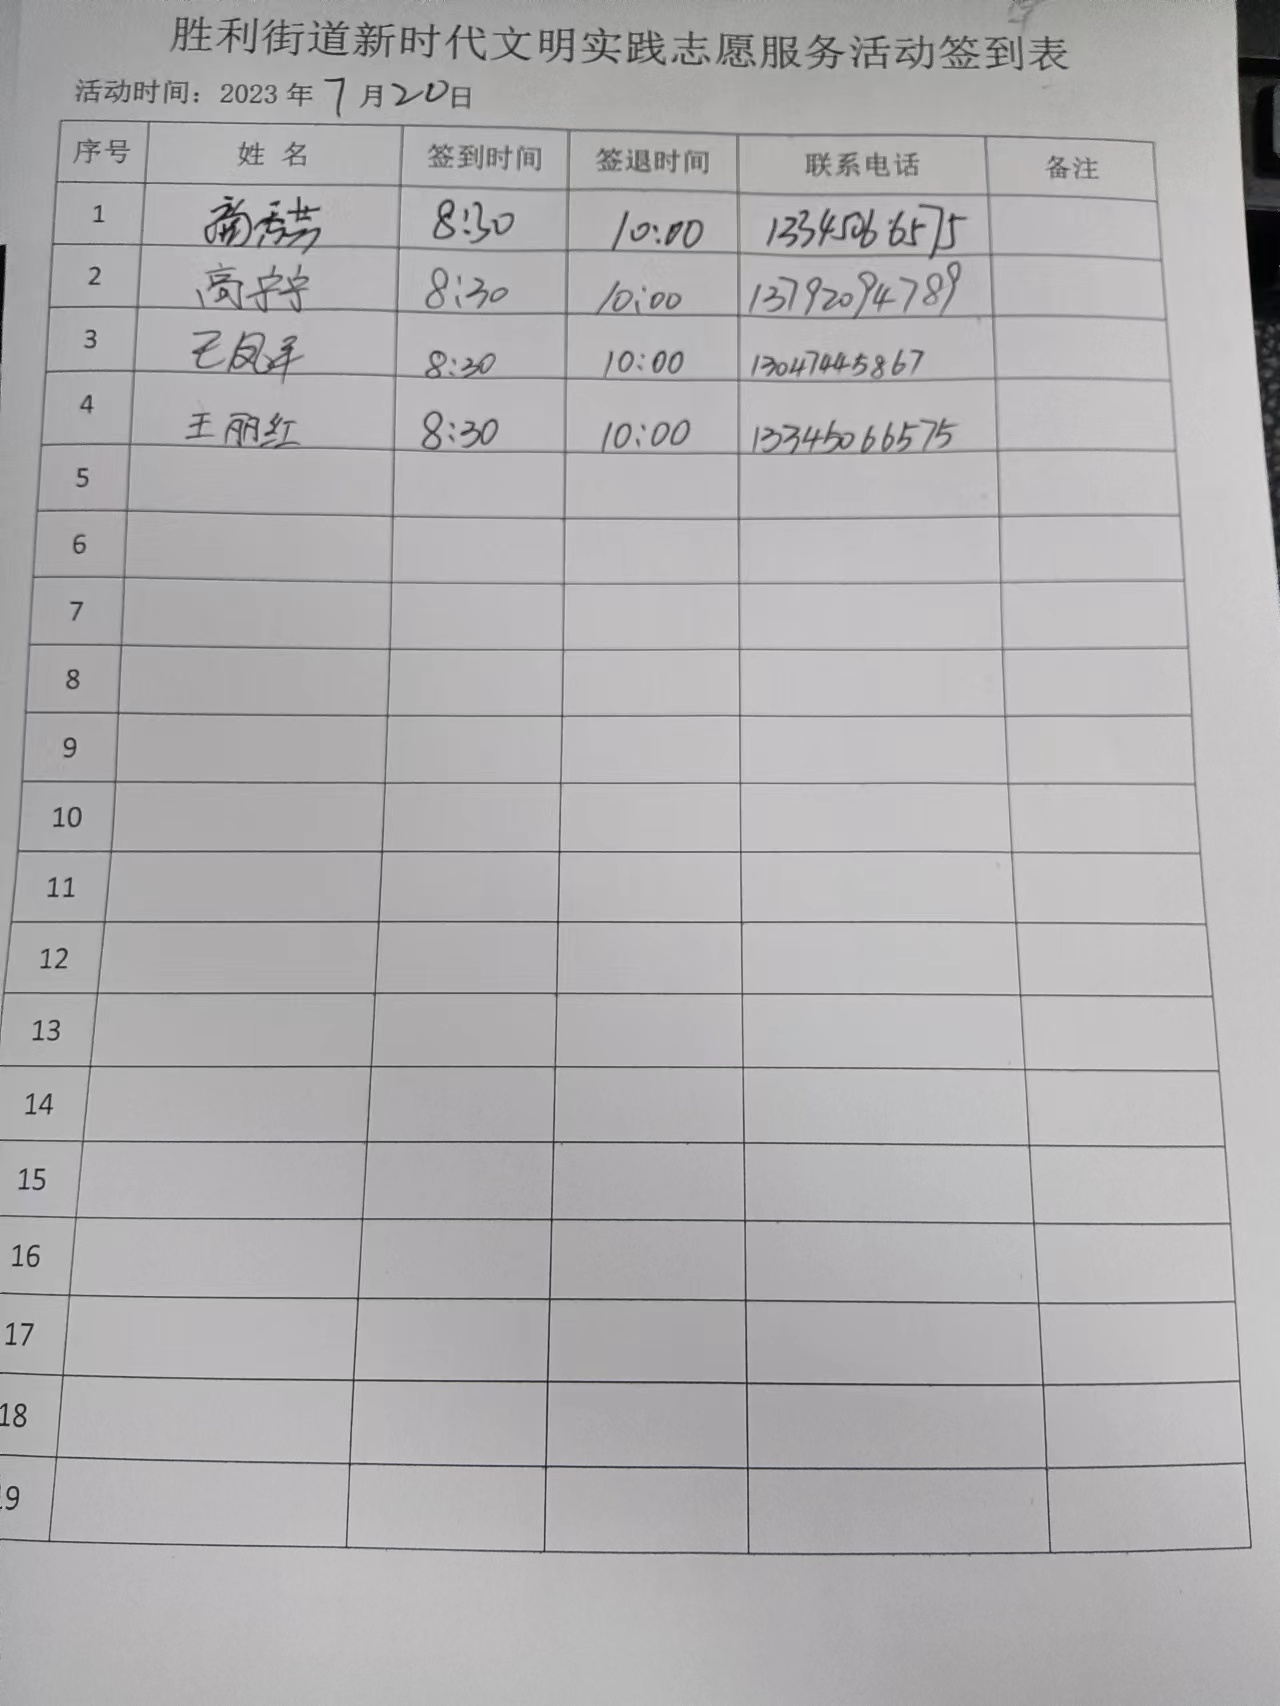 胜利街道新时代文明实践志愿服务活动签到表
活动时间：2023年7月20日
序号 姓名 签到时间 签退时间 联系电话 备注
1 8:30 10:00 13345066575
2 高宁宁 8:30 10:00 13792094789
3 王凤军 8:30 10:00 13047445867
4 王丽红 8:30 10:00 13345066575
5
6
7
8
9
10
11
12
13
14
15
16
17
18
19